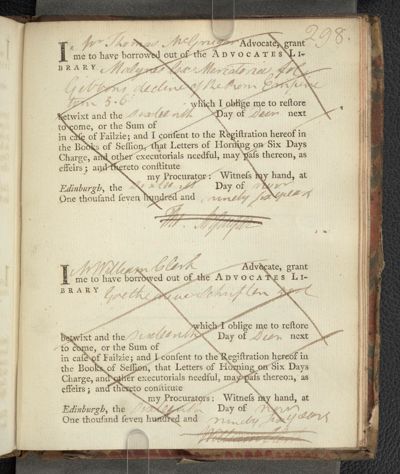 298.
I Mr Thomas McGrugar Advocate, grant
me to have borrowed out of the ADVOCATES LI-
BRARY Malynes Lex Mercatoria fol
Gibbons decline of the Rom Empire
Tom 5. 6 which I oblige me to restore
betwixt and the sixteenth Day of Decr next
to come, or the Sum of
in case of Failzie; and I consent to the Registration hereof in
the Books of Session, that Letters of Horning on Six Days
Charge, and other executorials needful, may pass thereon, as
effeirs; and thereto constitute
my Procurator: Witness my hand, at
Edinburgh, the sixteenth Day of Novr
One thousand seven hundred and ninety six years
I Mr William Clerk Advocate, grant
me to have borrowed out of the ADVOCATES LI-
BRARY Goethe neue Schriften
which I oblige me to restore
betwixt and the sixteenth Day of Decr next
to come, or the Sum of
in case of Failzie; and I consent to the Registration hereof in
the Books of Session, that Letters of Horning on Six Days
Charge, and other executorials needful, may pass thereon, as
effeirs; and thereto constitute
my Procurators: Witness my hand, at
Edinburgh, the sixteenth Day of Novr
One thousand seven hundred and ninety six years
William Clerk